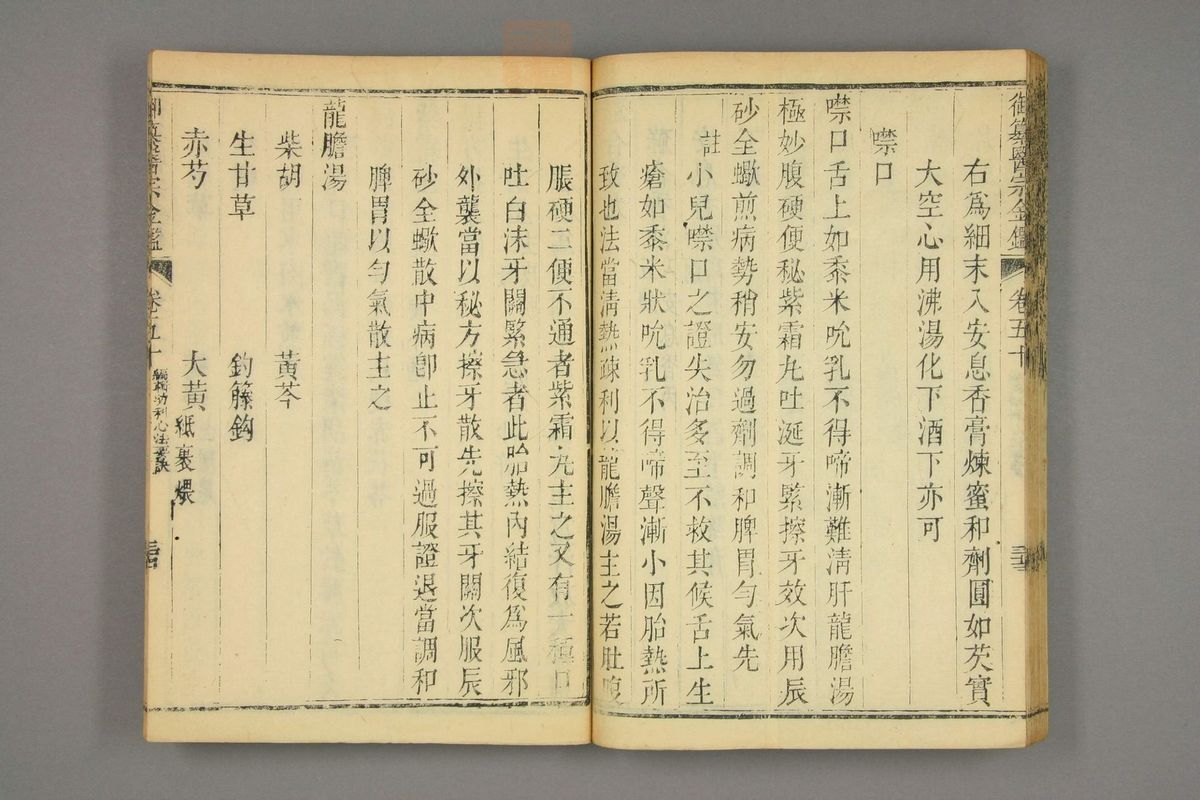 御纂醫宗金鑑 卷五十
右爲細末入安息香膏煉蜜和劑圓如芡實
大空心用沸湯化下酒下亦可
噤口
噤口舌上如黍米吮乳不得啼漸難清肝龍膽湯
極妙腹硬便秘紫霜丸吐涎牙緊擦牙效次用辰
砂全蠍煎病勢稍安勿過劑調和脾胃勻氣先
註小兒噤口之證失治多至不救其候舌上生
瘡如黍米狀吮乳不得啼聲漸小因胎熱所
致也法當清熱疎利以龍膽湯主之若肚腹
脹硬二便不通者紫霜丸主之又有一種口
吐白沫牙關緊急者此胎熱內結復爲風邪
外襲當以秘方擦牙散先擦其牙關次服辰
砂全蠍散中病卽止不可過服證退當調和
脾胃以勻氣散主之
龍膽湯
柴胡 黃芩
生甘草 釣籐鈎
赤芍 大黃紙裹煨
御纂醫宗金鑑 卷五十